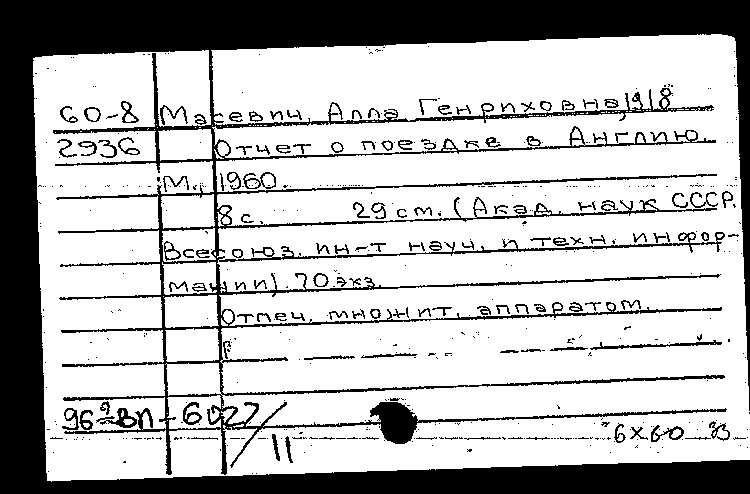 60-8 Масевич, Алла Генриховна, 1918
2936 Отчет о поездке в Англию.
М., 1960.
8 с. 29 см. (Акад. наук СССР.
Всесоюз. ин-т науч. и техн. инфор-
мации). 70 экз.
Отпеч. множит. аппаратом.
6027/11
6х60